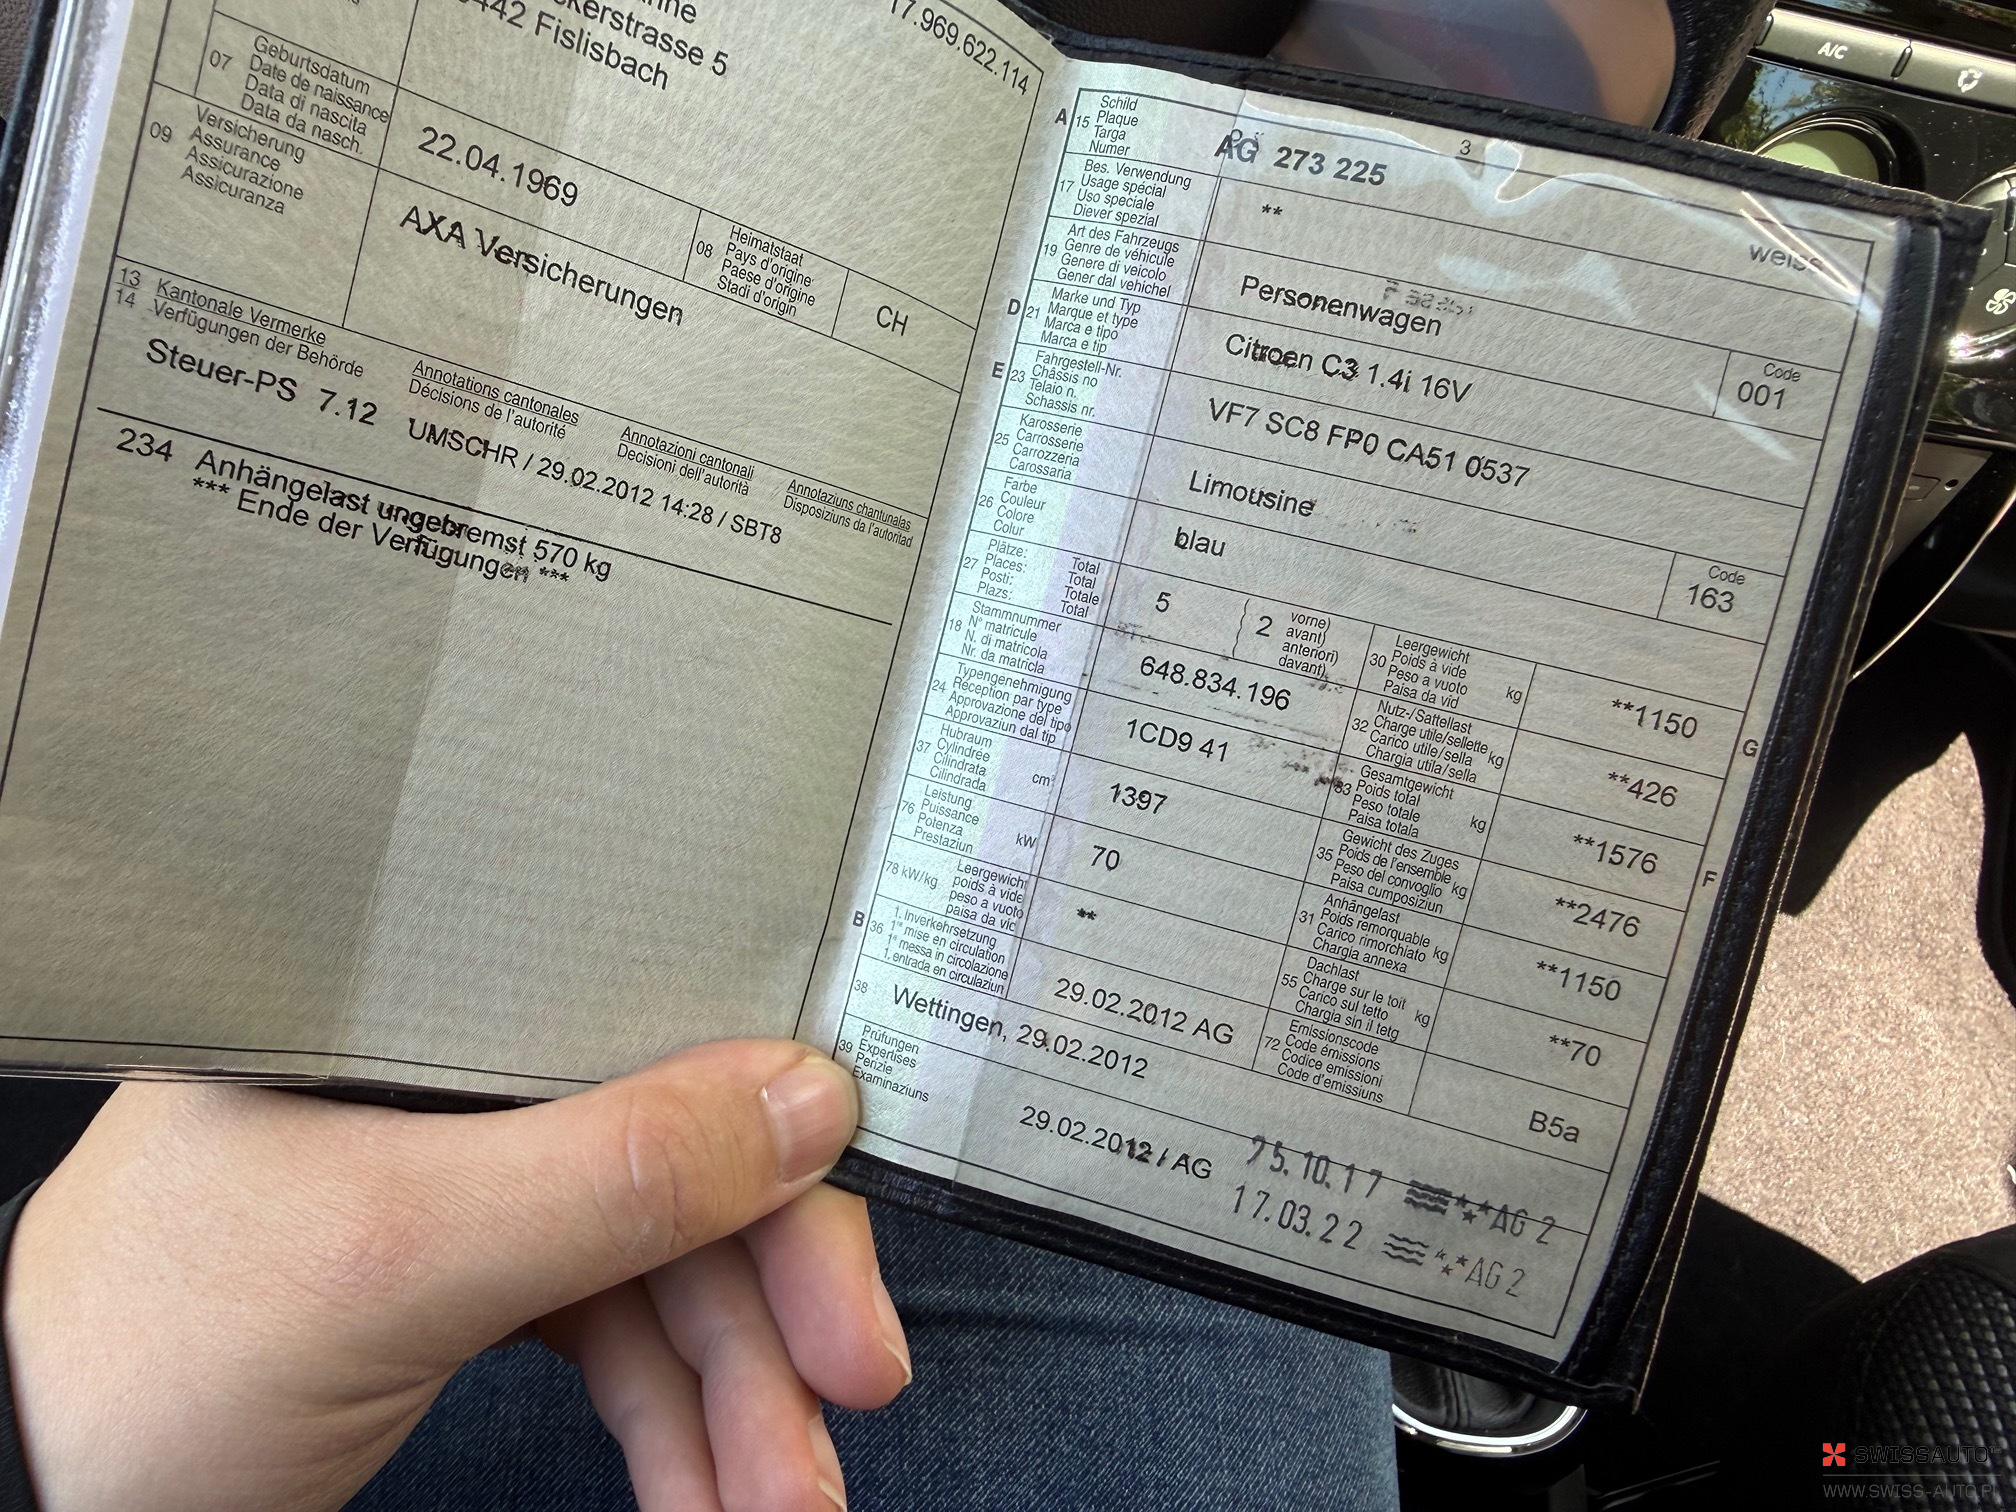 5442 Fislisbach
17.969.622.114
07
Geburtsdatum
Date de naissance
Data di nascita
Data da nasch.
22.04.1969
08
Heimatstaat
Pays d'origine
Paese d'origine
Stadi d'origin
CH
09
Versicherung
Assurance
Assicurazione
Assicuranza
AXA Versicherungen
13 Kantonale Vermerke
14 Verfügungen der Behörde
Annotations cantonales
Décisions de l'autorité
Annotazioni cantonali
Decisioni dell'autorità
Annotaziuns chantunalas
Disposiziuns da l'autoritad
Steuer-PS 7.12 UMSCHR / 29.02.2012 14:28 / SBT8
234 Anhängelast ungebremst 570 kg
*** Ende der Verfügungen ***
3
A 15
Schild
Plaque
Targa
Numer
AG 273 225
weiss
17
Bes. Verwendung
Usage spécial
Uso speciale
Diever spezial
**
19
Art des Fahrzeugs
Genre de véhicule
Genere di veicolo
Gener dal vehichel
Personenwagen
Code
001
D 21
Marke und Typ
Marque et type
Marca e tipo
Marca e tip
Citroen C3 1.4i 16V
E 23
Fahrgestell-Nr.
Châssis no
Telaio n.
Schassis nr.
VF7 SC8 FP0 CA51 0537
25
Karosserie
Carrosserie
Carrozzeria
Carossaria
Limousine
Code
163
26
Farbe
Couleur
Colore
Colur
blau
27
Plätze: Total
Places: Total
Posti: Totale
Plazs: Total
5
2
vorne)
avant)
anteriori)
davant)
18
Stammnummer
N° matricule
N. di matricola
Nr. da matricla
648.834.196
24
Typengenehmigung
Réception par type
Approvazione del tipo
Approvaziun dal tip
1CD9 41
37
Hubraum
Cylindrée
Cilindrata
Cilindrada
cm³
1397
76
Leistung
Puissance
Potenza
Prestaziun
kW
70
78 kW/kg
Leergewicht
poids à vide
peso a vuoto
paisa da vid
**
B 36
1. Inverkehrsetzung
1re mise en circulation
1a messa in circolazione
1. entrada en circulaziun
29.02.2012 AG
38
Wettingen, 29.02.2012
30
Leergewicht
Poids à vide
Peso a vuoto
Paisa da vid
kg
**1150
G
32
Nutz-/Sattellast
Charge utile/sellette
Carico utile/sella
Chargia utila/sella
kg
**426
33
Gesamtgewicht
Poids total
Peso totale
Paisa totala
kg
**1576
F
35
Gewicht des Zuges
Poids de l'ensemble
Peso del convoglio
Paisa cumposiziun
kg
**2476
31
Anhängelast
Poids remorquable
Carico rimorchiato
Chargia annexa
kg
**1150
55
Dachlast
Charge sur le toit
Carico sul tetto
Chargia sin il tetg
kg
**70
72
Emissionscode
Code émissions
Codice emissioni
Code d'emissiuns
B5a
39
Prüfungen
Expertises
Perizie
Examinaziuns
29.02.2012 / AG
25.10.17 AG 2
17.03.22 AG 2
A/C
SWISSAUTO
WWW.SWISS-AUTO.PL